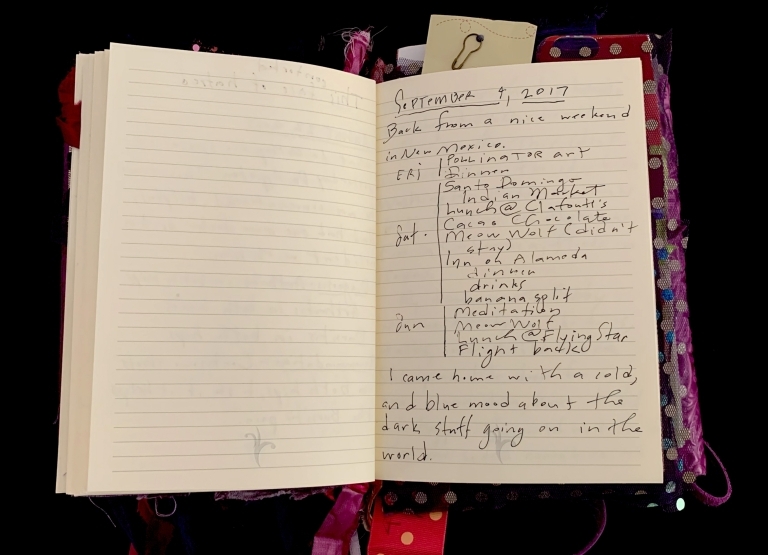 September 4, 2017
Back from a nice weekend
in New Mexico.
FRI Pollinator art
dinner
Santo Domingo
Indian Market
Lunch @ Clafouti's
Cacao Chocolate
Sat. Meow Wolf (didn't
stay)
Inn on Alameda
dinner
drinks
banana split
Meditation
Sun Meow Wolf
Lunch @ Flying Star
Flight back
I came home with a cold,
and blue mood about the
dark stuff going on in the
world.